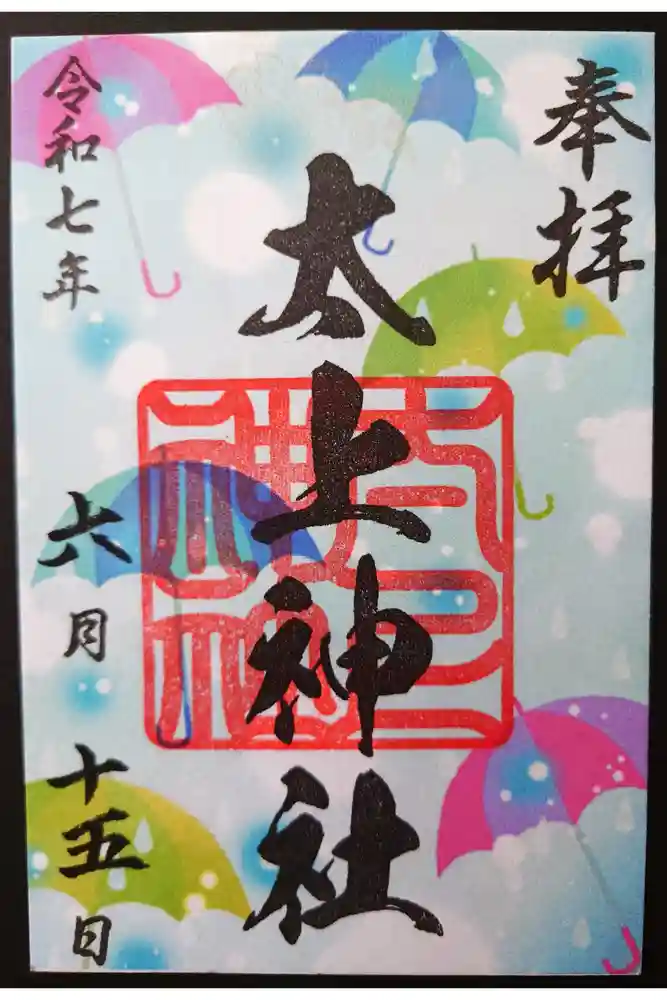 奉拝
太上神社
令和七年
六月
十五日